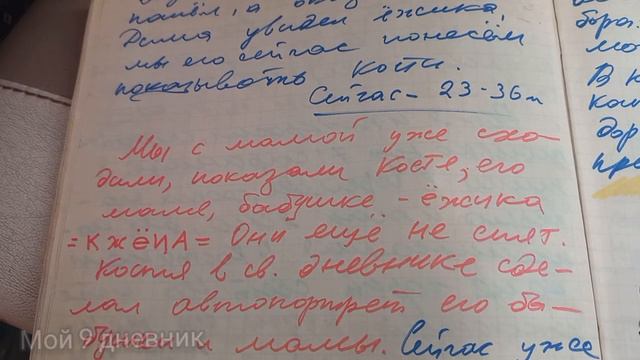 Дима увидел ёжика,
мы его сейчас понесём
показывать Коти.
Сейчас - 23-36м
Мы с мамой уже схо-
дили, показали Косте, его
маме, бабушке - ёжика
= К ЖЁНА = Они ещё не спят.
Костя в св. дневнике сде-
лал автопортрет его ба-
и мамы. Сейчас уже
Мой 9 дневник